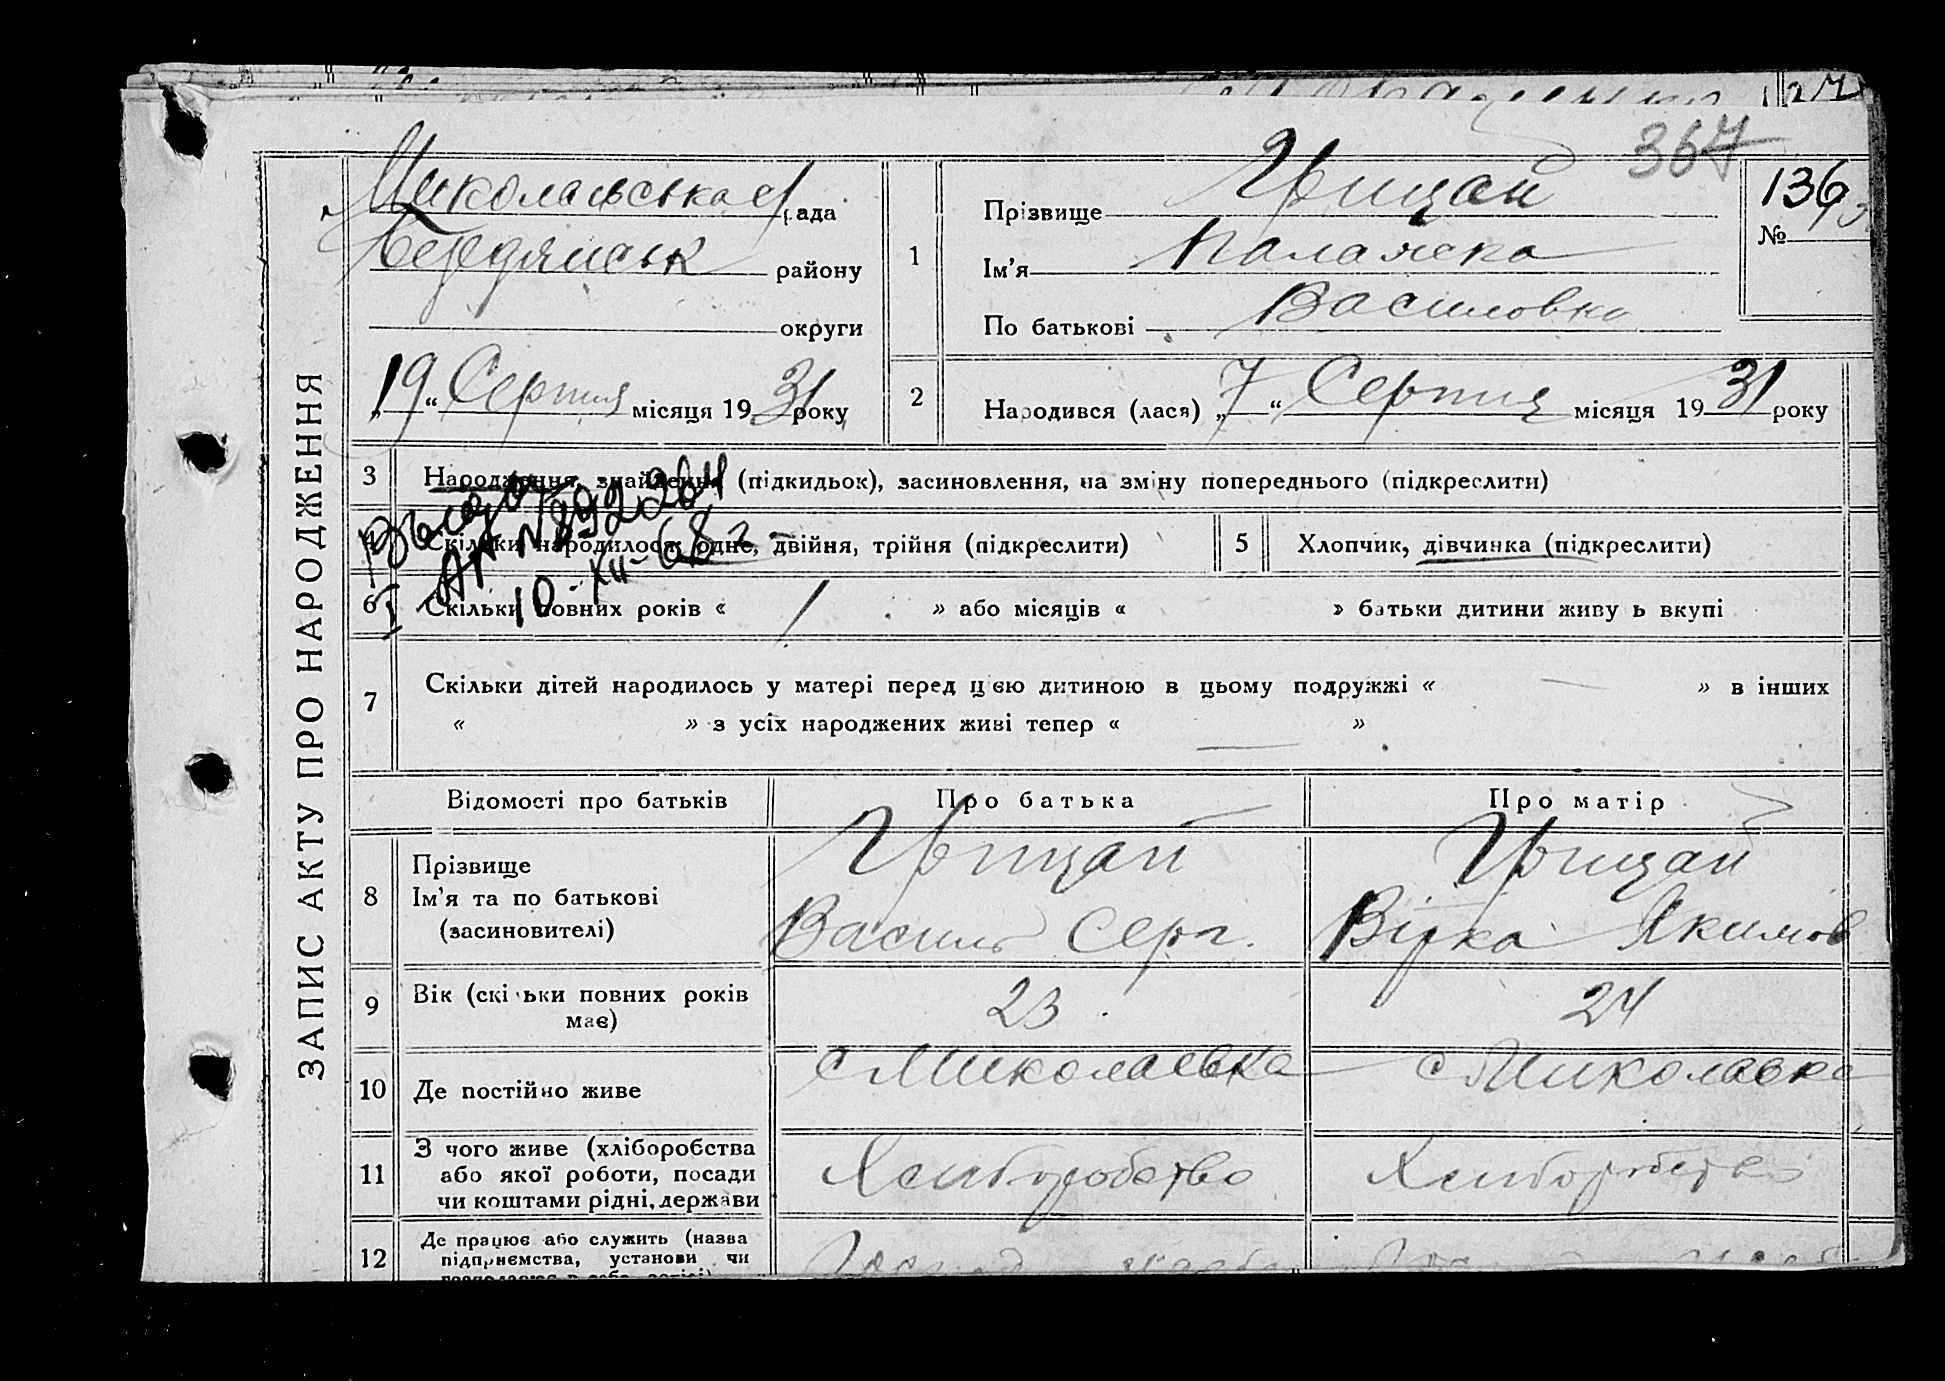 27
367
ЗАПИС АКТУ ПРО НАРОДЖЕННЯ
Миколаївська с/рада
Бердянськ району
округи
„19“ Серпня місяця 1931 року
1
Прізвище Грицай
Ім'я Палажка
По батькові Василовка
136
№
2
Народився (лася) „7“ Серпня місяця 1931 року
3 Народження, знайдення (підкидьок), засиновлення, на зміну попереднього (підкреслити)
4 Скільки народилося: одне, двійня, трійня (підкреслити)
5 Хлопчик, дівчинка (підкреслити)
10-XII-68 г.
6 Скільки повних років « 1 » або місяців « » батьки дитини живуть вкупі
7 Скільки дітей народилось у матері перед цією дитиною в цьому подружжі « — » в інших
« » з усіх народжених живі тепер « — »
Відомості про батьків
Про батька
Про матір
8 Прізвище
Ім'я та по батькові
(засиновителі)
Грицай
Василь Серг.
Грицай
Вірка Якимов
9 Вік (скільки повних років
має)
23
24
10 Де постійно живе
с Миколаевка
с Миколавка
11 З чого живе (хліборобства
або якої роботи, посади
чи коштами рідні, держави
Хлиборобство
Хлиборобство
12 Де працює або служить (назва
підприємства, установи чи